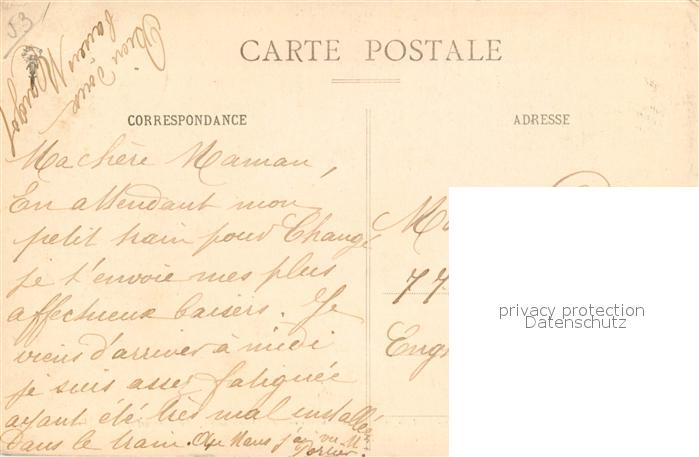 53
CARTE POSTALE
CORRESPONDANCE
ADRESSE
Ma chère Maman,
En attendant mon
petit train pour Changé
je t'envoie mes plus
affectueux baisers. Je
viens d'arriver à midi
je suis assez fatiguée
ayant été très mal installée
dans le train. Au Mans j'ai vu M
77
Eng
privacy protection
Datenschutz
Bien doux
baisers Margot